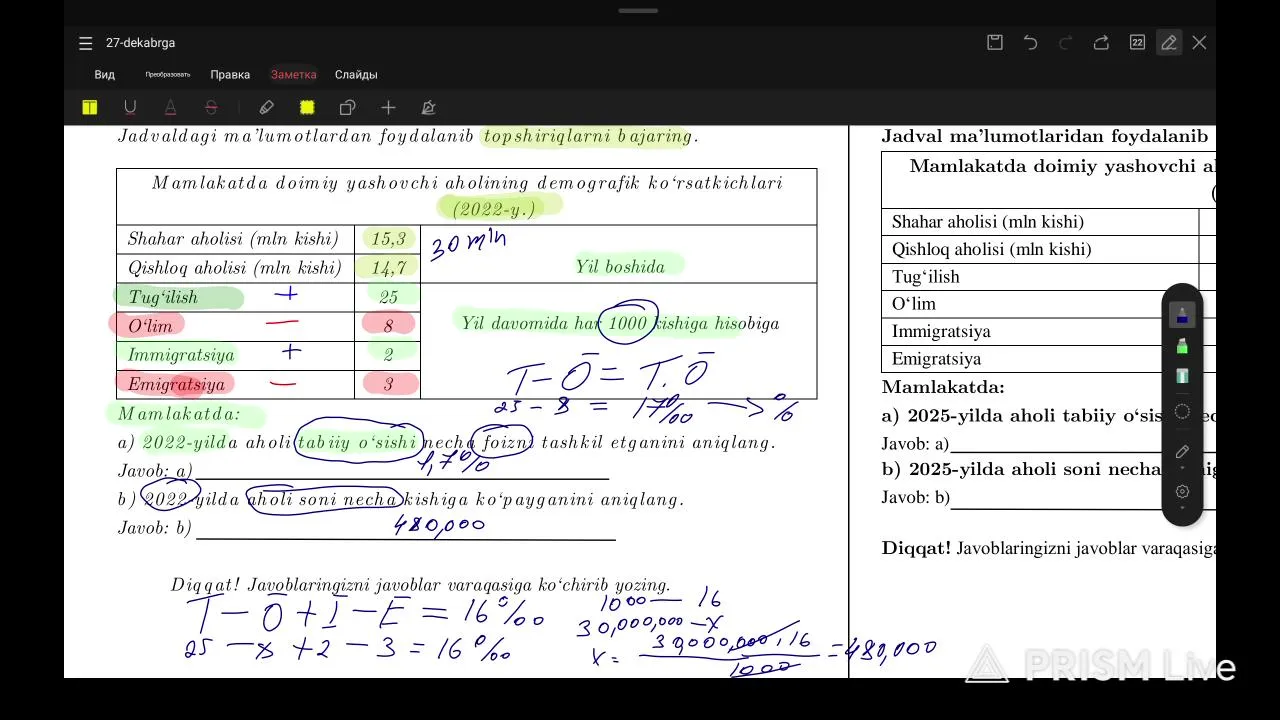 27-dekabrga
22
Вид Преобразовать Правка Заметка Слайды
Jadvaldagi ma'lumotlardan foydalanib topshiriqlarni bajaring.
Mamlakatda doimiy yashovchi aholining demografik ko‘rsatkichlari
(2022-y.)
Shahar aholisi (mln kishi) 15,3 30 mln
Qishloq aholisi (mln kishi) 14,7 Yil boshida
Tug‘ilish + 25
O‘lim — 8 Yil davomida har 1000 kishiga hisobiga
Immigratsiya + 2
Emigratsiya — 3
T - Ō = T.Ō
25 - 8 = 17‰ → %
Mamlakatda:
a) 2022-yilda aholi tabiiy o‘sishi necha foizni tashkil etganini aniqlang.
Javob: a) 1,7%
b) 2022-yilda aholi soni necha kishiga ko‘payganini aniqlang.
Javob: b) 480,000
Diqqat! Javoblaringizni javoblar varaqasiga ko‘chirib yozing.
T - Ō + I - E = 16‰
25 - 8 + 2 - 3 = 16‰
1000 — 16
30,000,000 - x
x = 30,000,000 . 16 / 1000 = 480,000
Jadval ma’lumotlaridan foydalanib
Mamlakatda doimiy yashovchi
(
Shahar aholisi (mln kishi)
Qishloq aholisi (mln kishi)
Tug‘ilish
O‘lim
Immigratsiya
Emigratsiya
Mamlakatda:
a) 2025-yilda aholi tabiiy o‘sis
Javob: a)
b) 2025-yilda aholi soni necha
Javob: b)
Diqqat! Javoblaringizni javoblar varaqasiga
PRISM Live